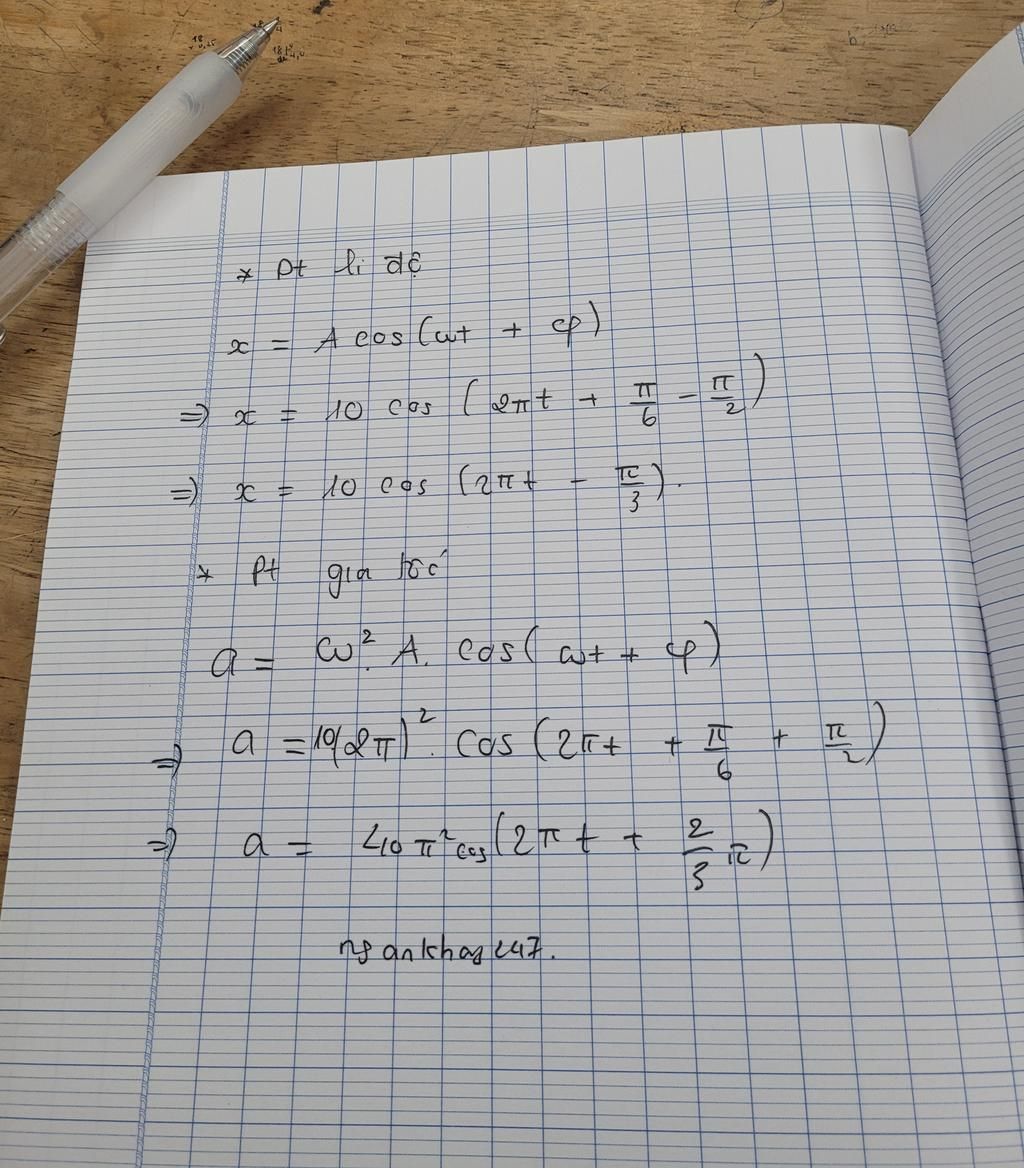 * Pt li độ
x = A cos(ωt + φ)
=> x = 10 cos (2πt + π/6 - π/2)
=> x = 10 cos (2πt - π/3).
* Pt gia tốc
a = ω². A. cos( ωt + φ)
=> a = 10(2π)². cos (2πt + π/6 + π/2)
=> a = 40 π² cos(2πt + 2/3 π)
ngankhas247.